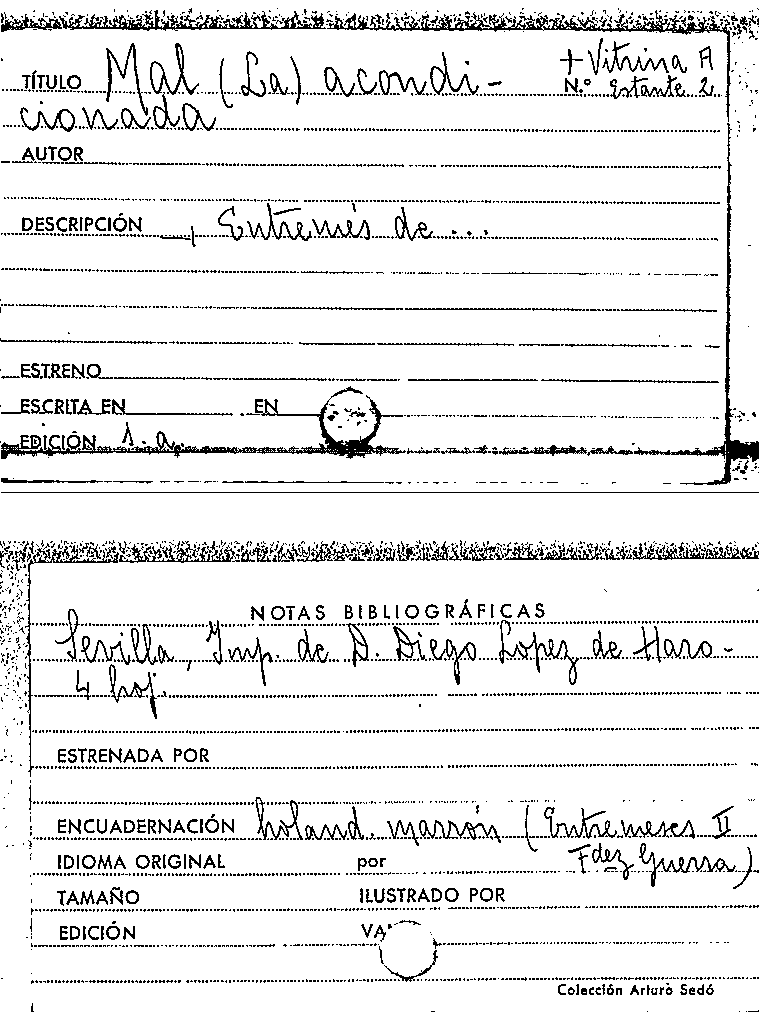 TÍTULO Mal (La) acondi-
cionada
+ Vitrina A
N.º Estante 2
AUTOR
DESCRIPCIÓN Entremés de ...
ESTRENO
ESCRITA EN EN
EDICIÓN s. a.
NOTAS BIBLIOGRÁFICAS
Sevilla, Imp. de D. Diego Lopez de Haro -
4 hoj.
ESTRENADA POR
ENCUADERNACIÓN holand. marrón (Entremeses II
Fdez Guerra)
IDIOMA ORIGINAL por
TAMAÑO ILUSTRADO POR
EDICIÓN
Colección Arturo Sedó